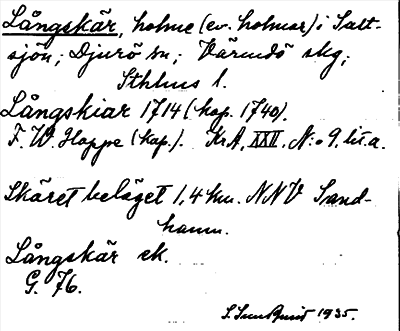 Långskär, holme (ev. holmar) i Salt-
sjön; Djurö sn; Värmdö skg;
Sthlms l.
Långskiar 1714 (kop. 1740).
F. W. Hoppe (kop.). KrA, XXV, N:o 9, lit. a.
Skäret beläget 1,4 km. NNV Sand-
hamn.
Långskär ek.
G. 76.
S. Sundquist 1935.